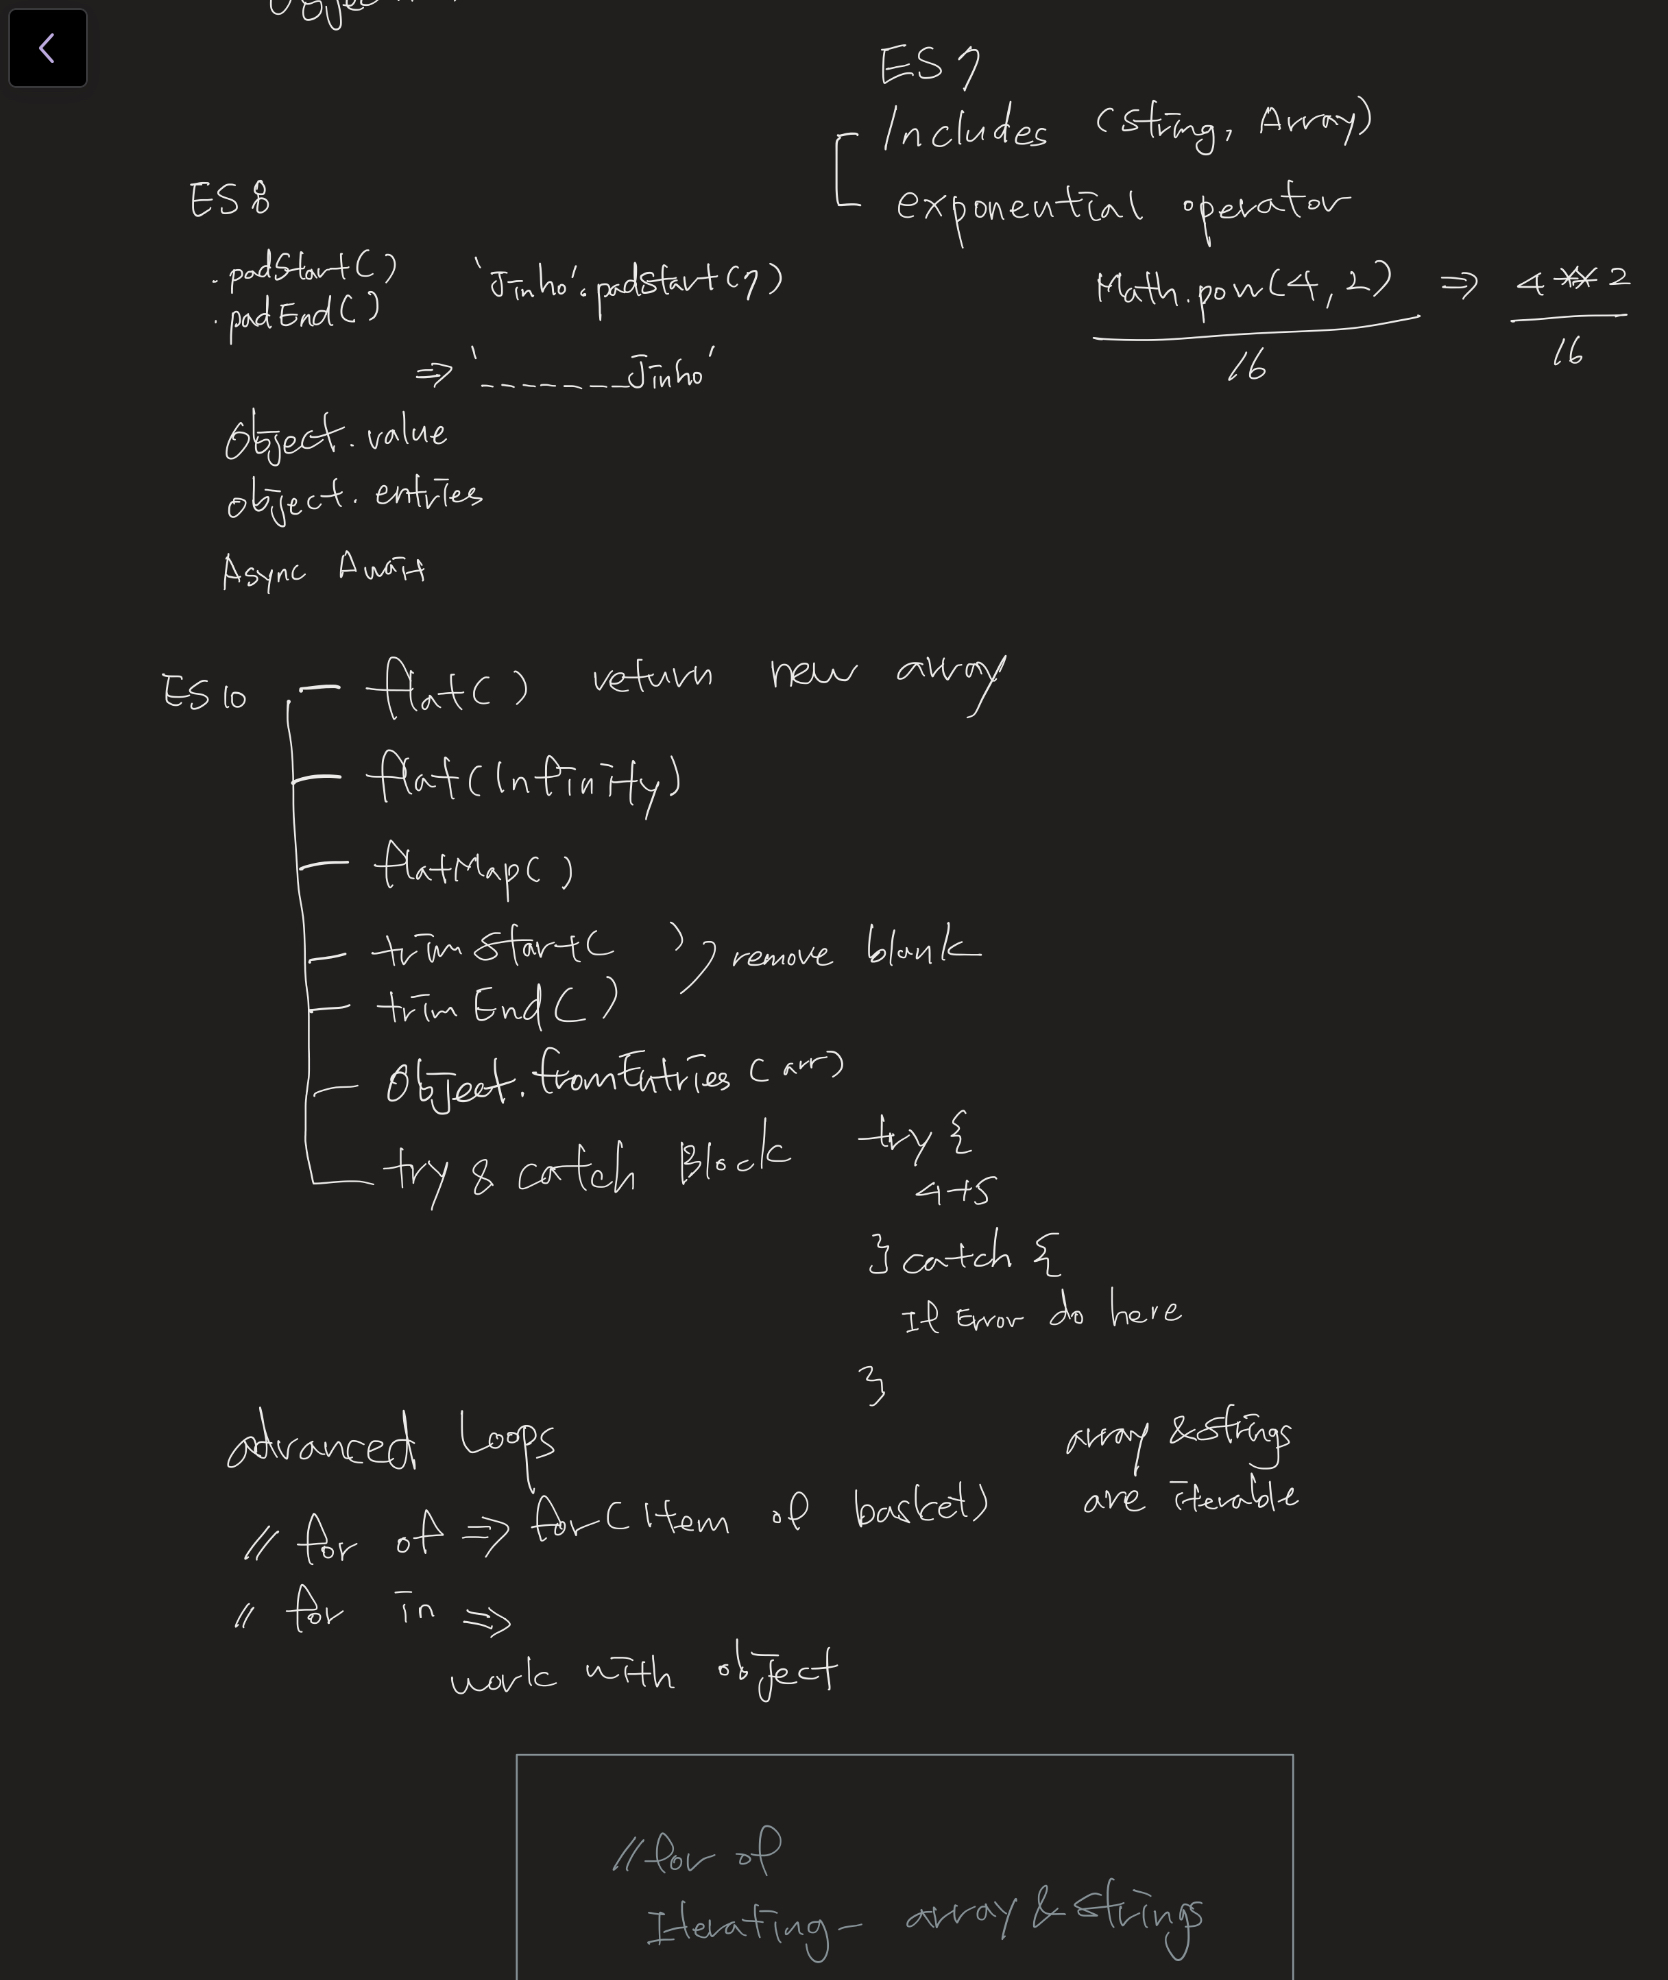 Object
ES7
Includes (string, Array)
exponential operator
Math.pow(4,2) => 4**2
16 16
ES8
.padStart()
.padEnd()
'Jinho'.padstart(7)
=> '_______Jinho'
Object.value
object.entries
Async Await
ES10
flat() return new array
flat(Infinity)
flatMap()
trimStart( )
trimEnd()
remove blank
Object.fromEntries(arr)
try & catch Block
try {
4+5
} catch {
If Error do here
}
advanced Loops
// for of => for(Item of basket)
array & strings
are iterable
// for in =>
work with object
// for of
Iterating - array & strings